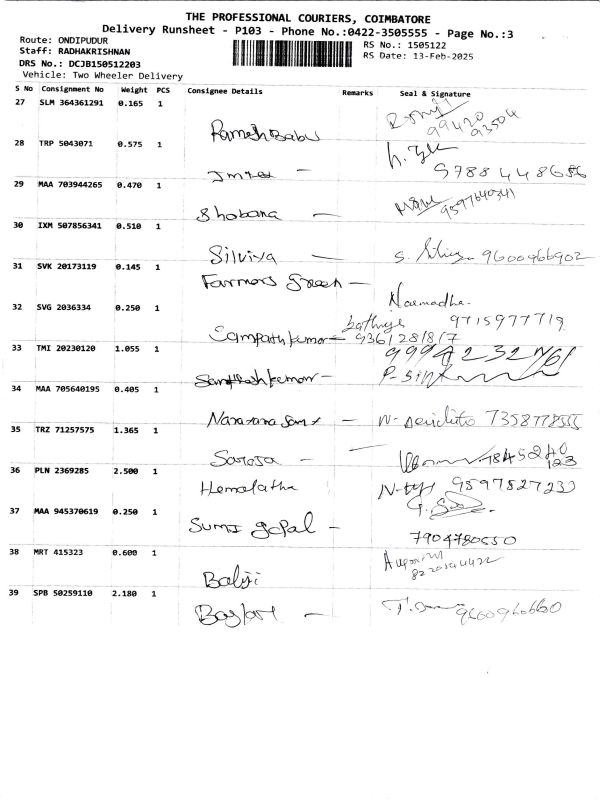 THE PROFESSIONAL COURIERS, COIMBATORE
Delivery Runsheet - P103 - Phone No.:0422-3505555 - Page No.:3
Route: ONDIPUDUR
RS No.: 1505122
Staff: RADHAKRISHNAN
RS Date: 13-Feb-2025
DRS No.: DCJB150512203
Vehicle: Two Wheeler Delivery
S No Consignment No Weight PCS Consignee Details Remarks Seal & Signature
27 SLM 364361291 0.165 1
Ramesh Babu 99420 93504
28 TRP 5043071 0.575 1
9788448656
29 MAA 703944265 0.470 1
Shobana — 9597640341
30 IXM 507856341 0.510 1
Silviya — 9600466902
31 SVK 20173119 0.145 1
Farmers Green — Narmadha.
32 SVG 2036334 0.250 1
9715977719
Sampathkumar — 936128817
33 TMI 20230120 1.055 1
Santhoshkumar —
34 MAA 705640195 0.405 1
— 7358778555
35 TRZ 71257575 1.365 1
Saroja —
36 PLN 2369285 2.500 1
Hemalatha
37 MAA 945370619 0.250 1
gopal — 7904780550
38 MRT 415323 0.600 1
Balaji
39 SPB 50259110 2.180 1
— 9600960660